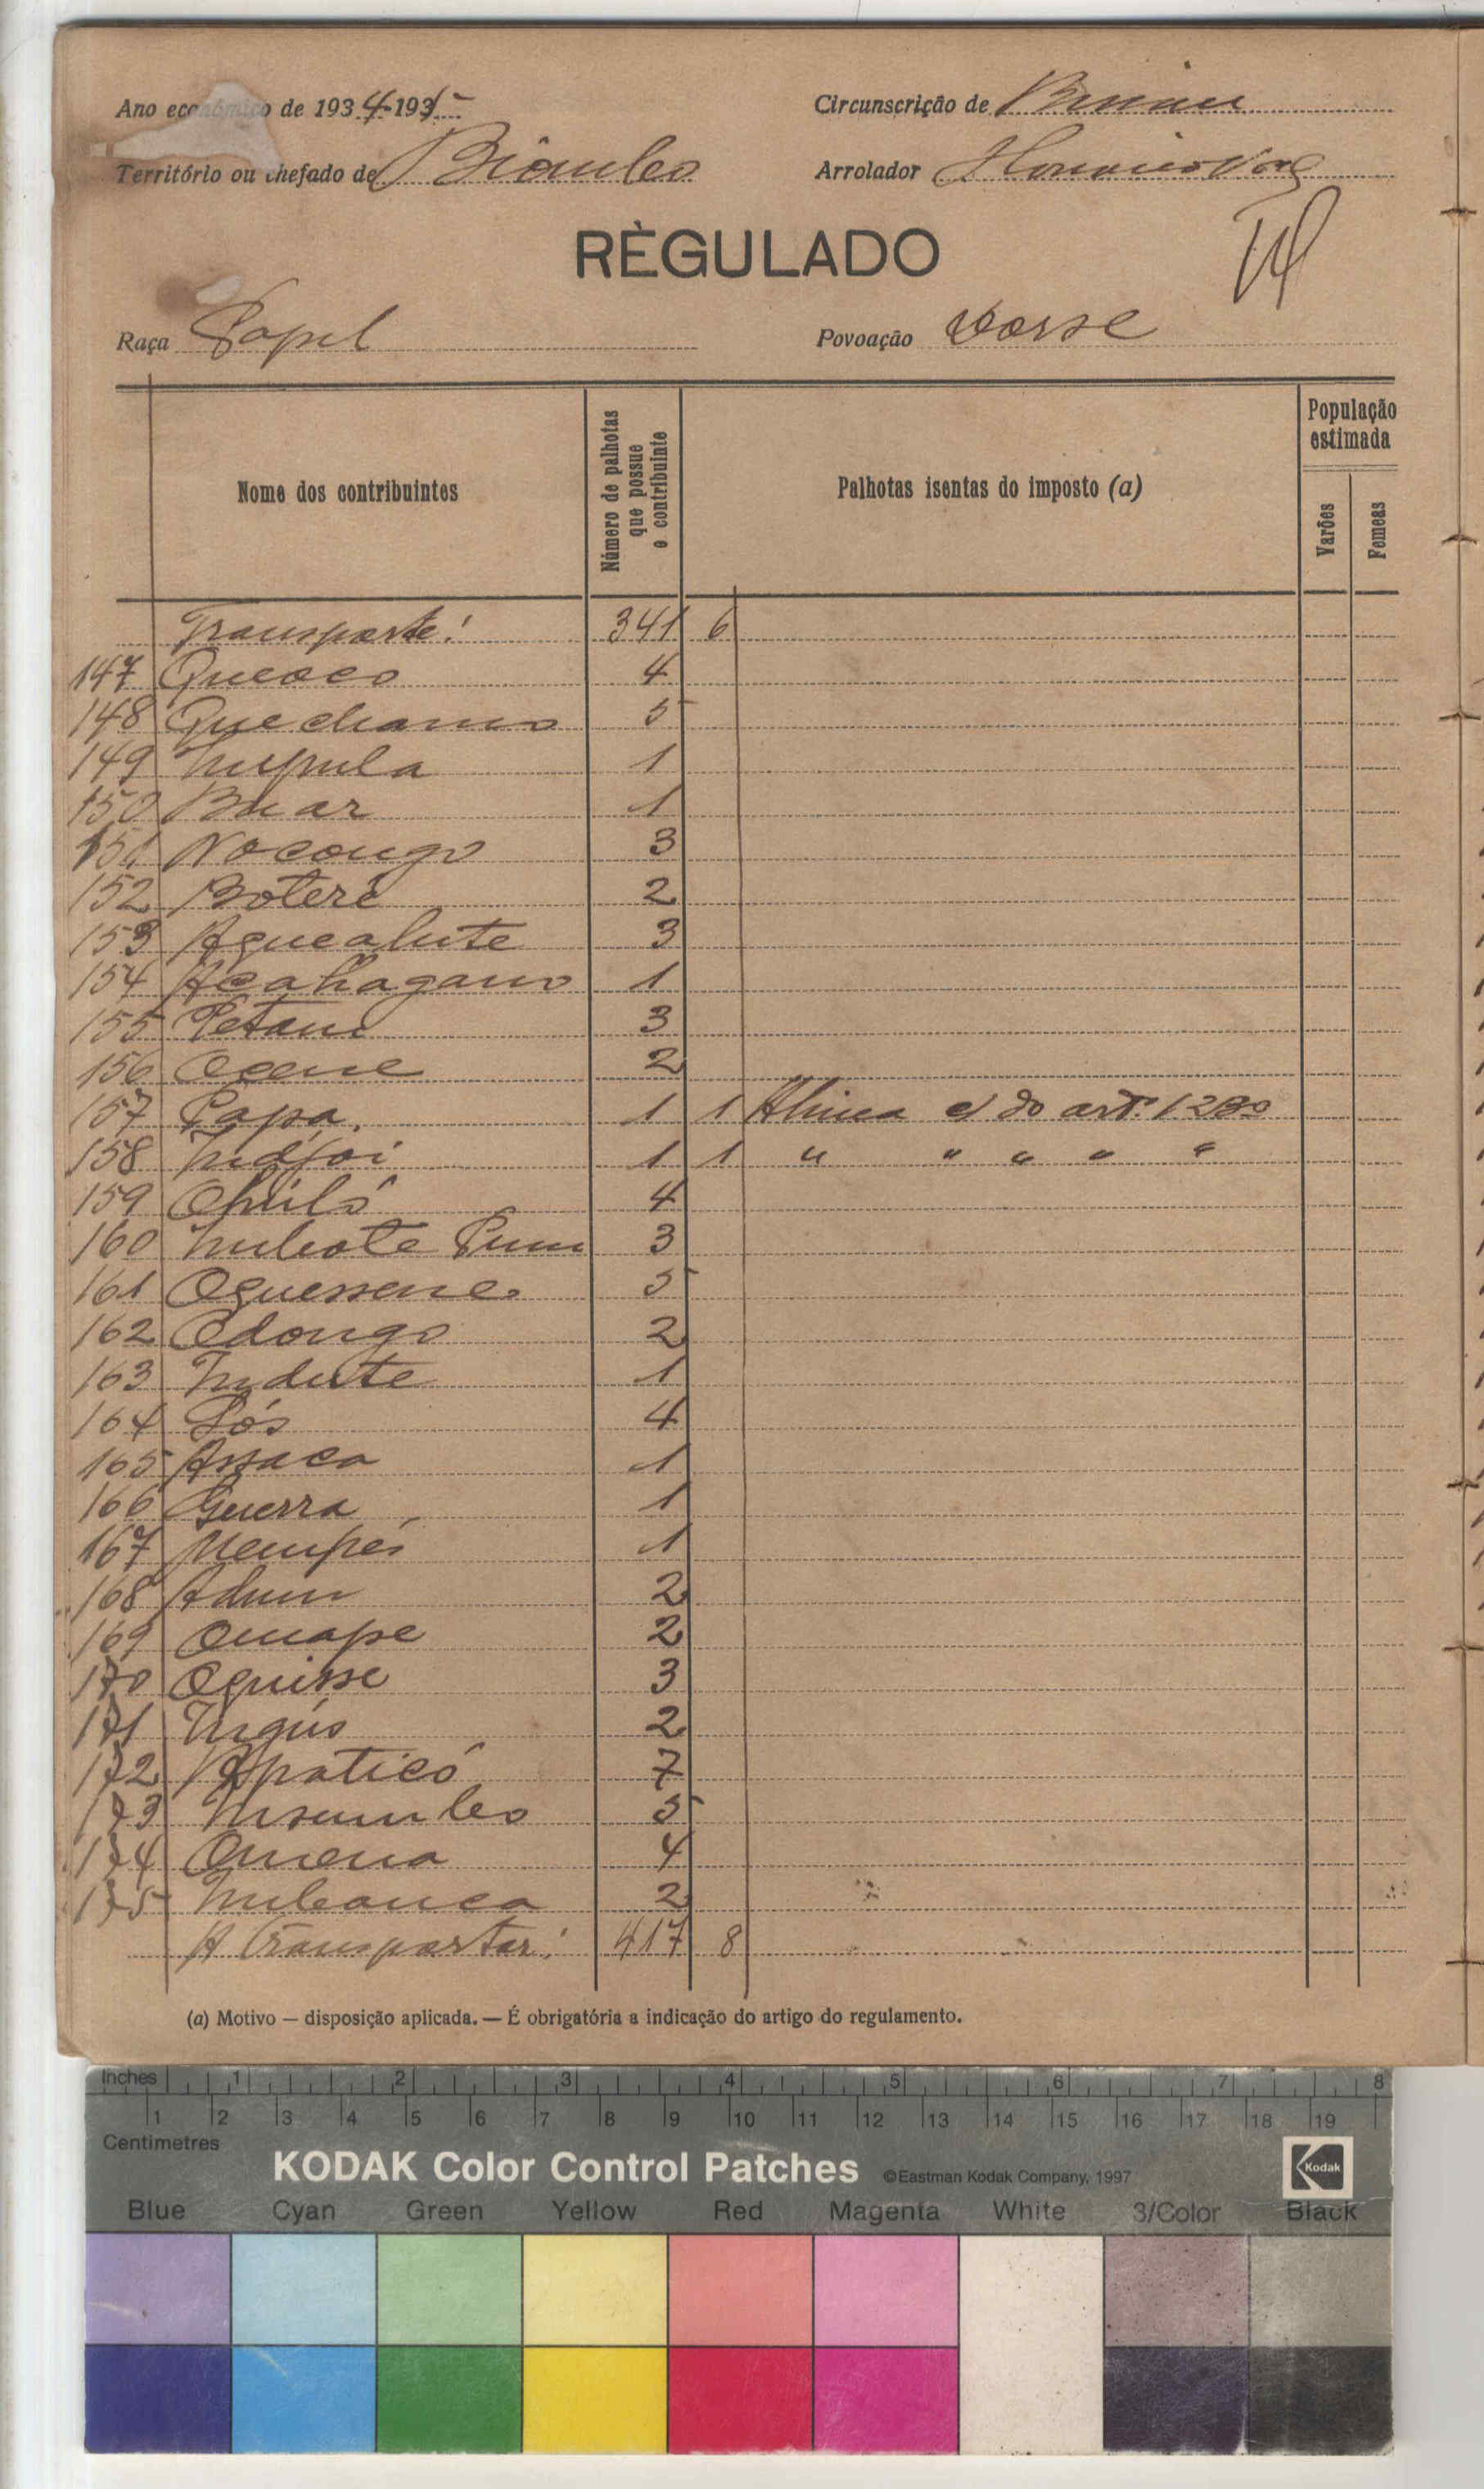 Ano económico de 1934-1935
Circunscrição de Bissau
Território ou chefado de Biombo
Arrolador
RÈGULADO
Raça Papel
Povoação Dorse
Nome dos contribuintes
Número de palhotas que possue o contribuinte
Palhotas isentas do imposto (a)
População estimada
Varões
Femeas
Transporte: 341 6
147 Queoco 4
148 Quechamo 5
149 1
150 Buar 1
151 Nocongo 3
152 Boterè 2
153 Aguealute 3
154 1
155 Petani 3
156 Ocene 2
157 Papa 1 1 Alinea c) do artº 1280
158 Indjoi 1 1 " " " " "
159 4
160 3
161 Oguessene 5
162 Odongo 2
163 Indute 1
164 Sós 4
165 Assaca 1
166 Guerra 1
167 1
168 2
169 Omape 2
170 Oquisse 3
171 2
172 Apaticó 7
173 5
174 4
175 2
A Transportar: 417 8
(a) Motivo — disposição aplicada. — É obrigatória a indicação do artigo do regulamento.
Inches 1 2 3 4 5 6 7 8
1 2 3 4 5 6 7 8 9 10 11 12 13 14 15 16 17 18 19
Centimetres
KODAK Color Control Patches ©Eastman Kodak Company, 1997 Kodak
Blue Cyan Green Yellow Red Magenta White 3/Color Black